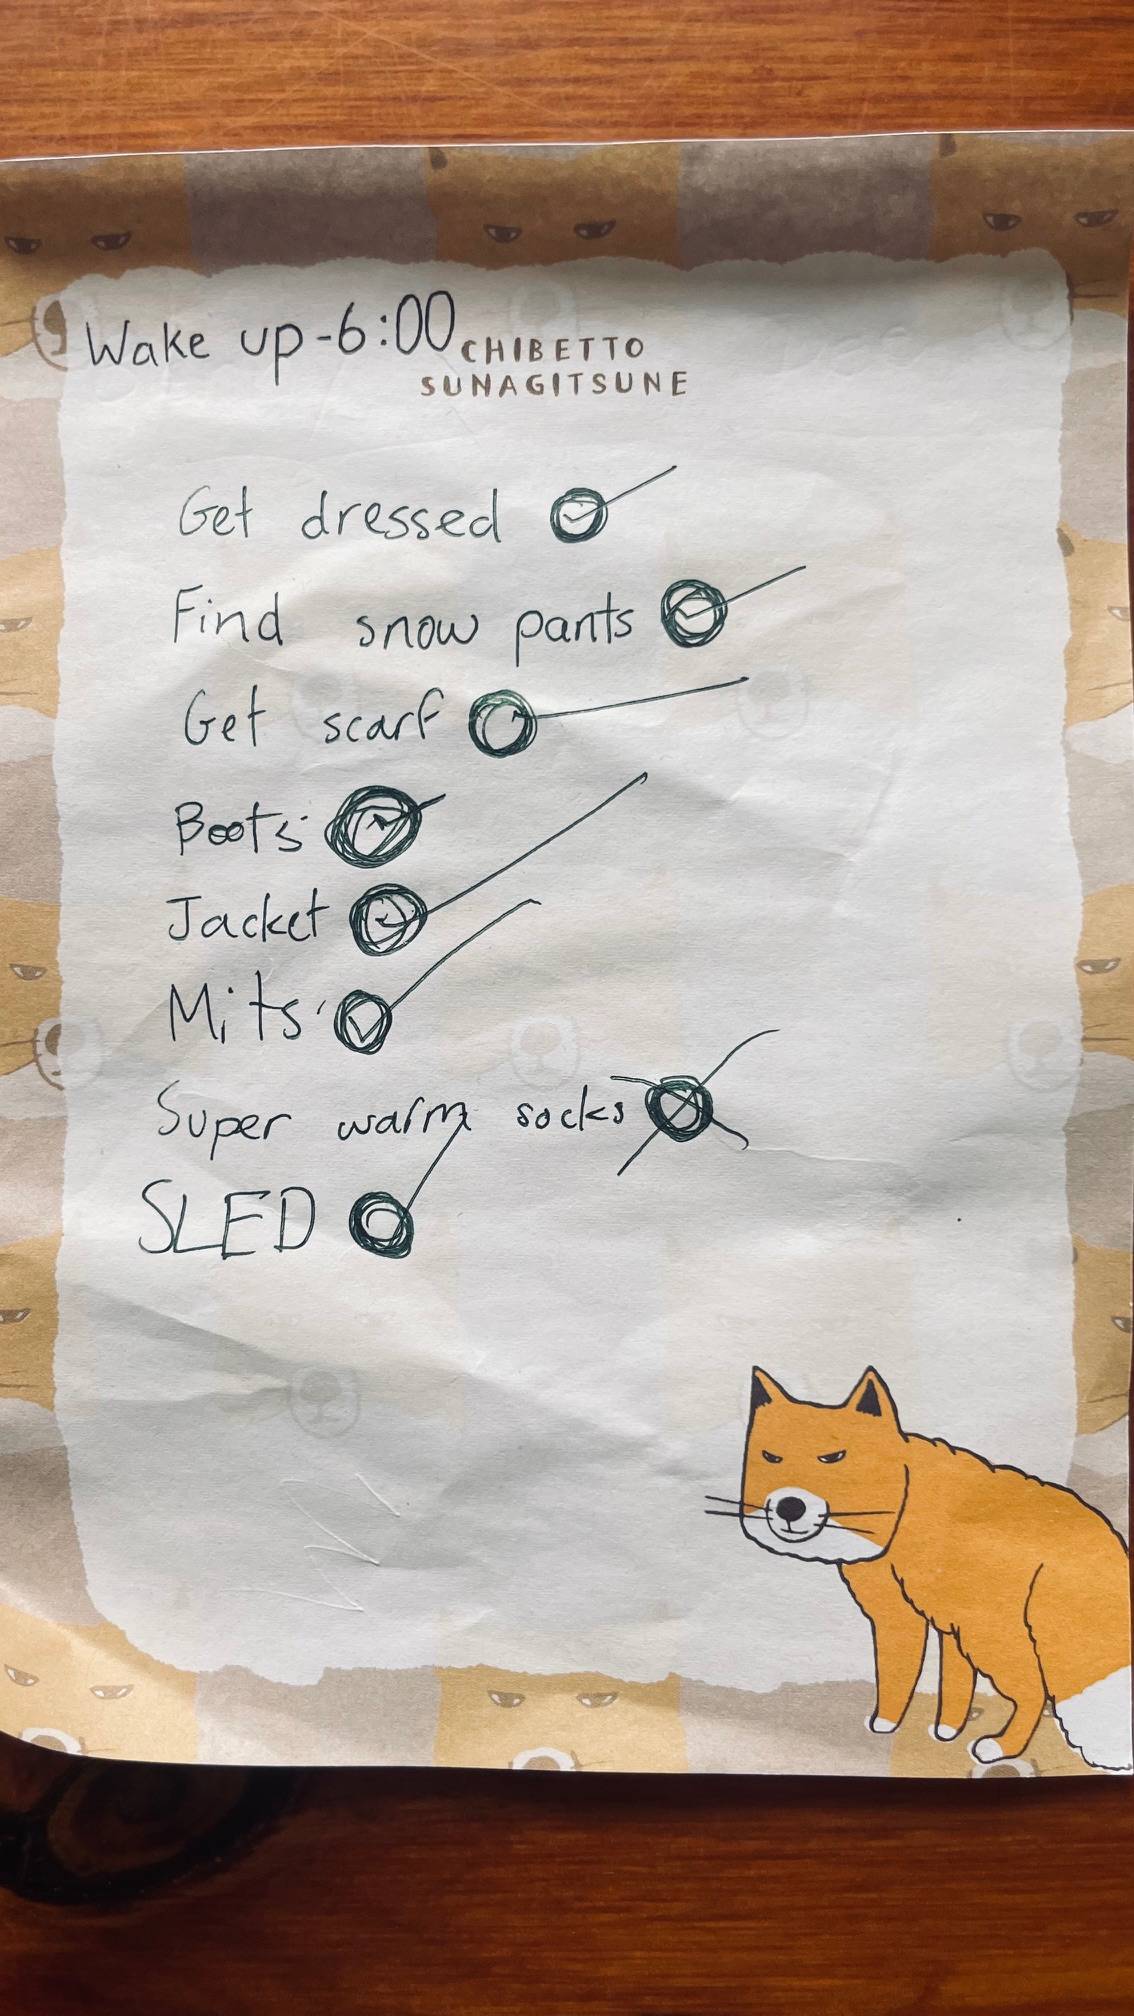 Wake up-6:00
CHIBETTO
SUNAGITSUNE
Get dressed
Find snow pants
Get scarf
Boots
Jacket
Mits
Super warm socks
SLED